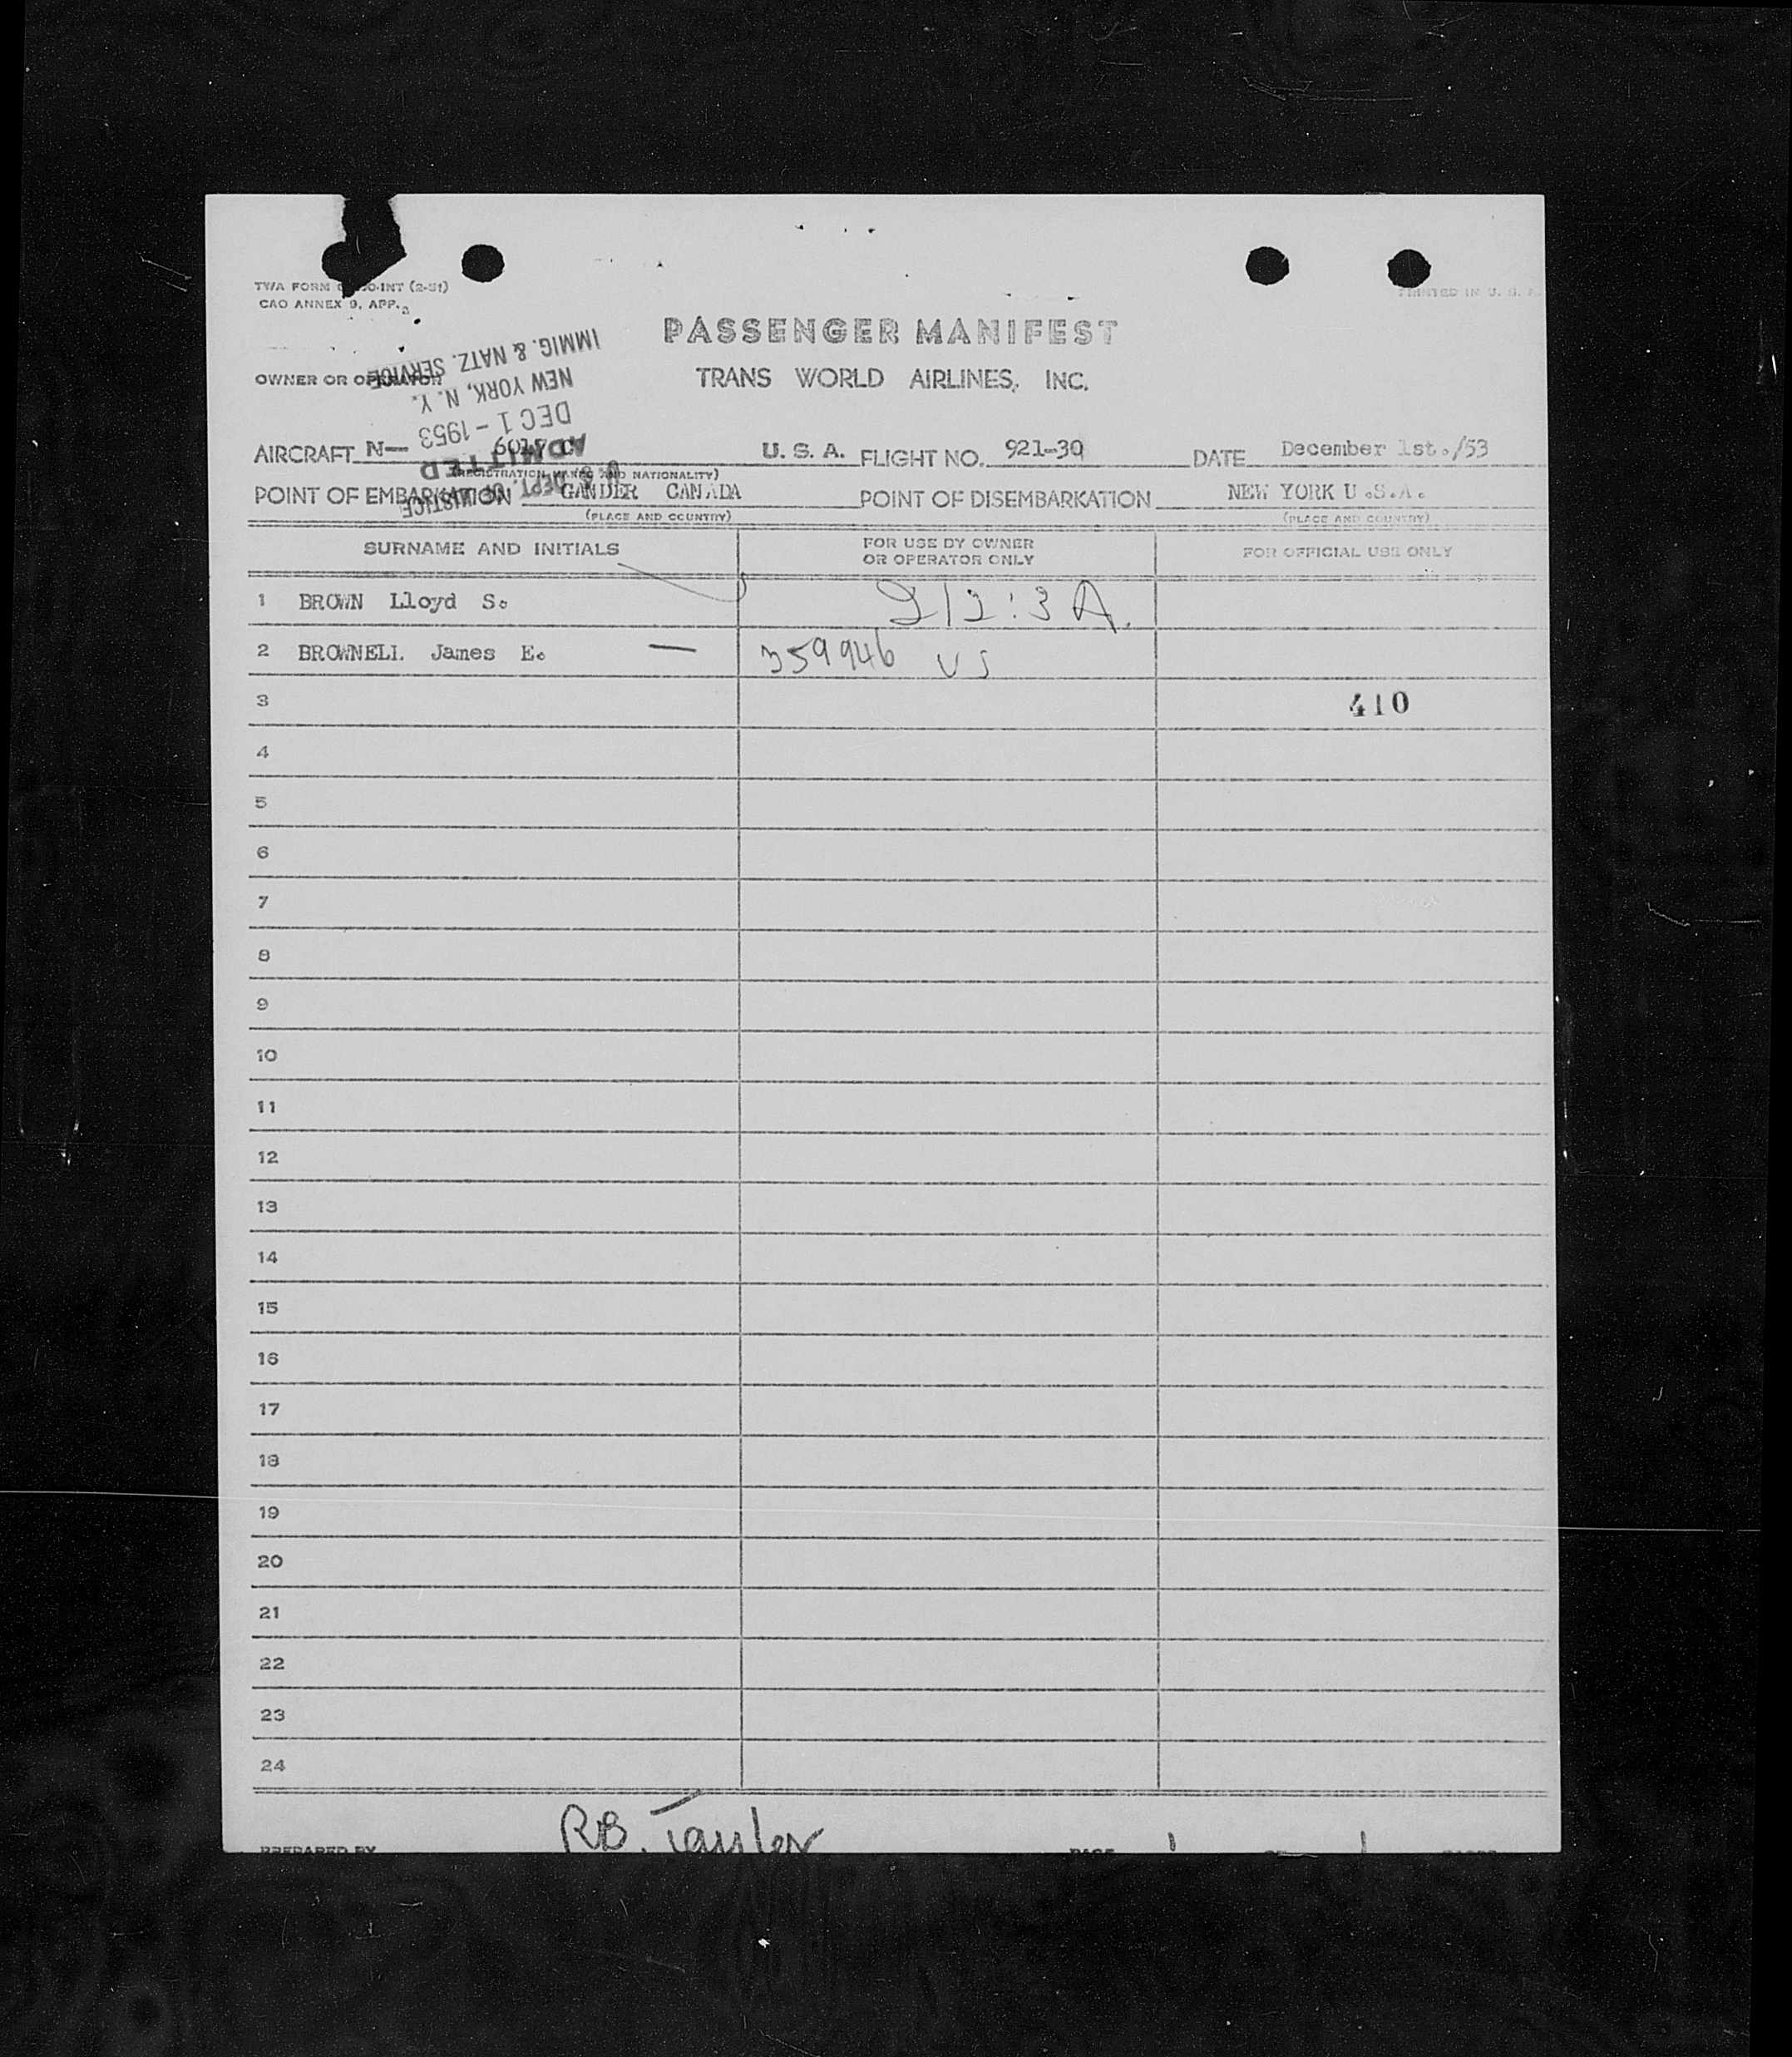 TWA FORM INT (2-51)
CAO ANNEX 9, APP. 2
PRINTED IN U. S. A.
PASSENGER MANIFEST
OWNER OR OPERATOR TRANS WORLD AIRLINES, INC.
ADMITTED
DEC 1 - 1953
NEW YORK, N. Y.
IMMIG. & NATZ. SERVICE
U. S. DEPT. OF JUSTICE
AIRCRAFT N— U. S. A. FLIGHT NO. 921-30 DATE December 1st./53
(REGISTRATION MARKS AND NATIONALITY)
POINT OF EMBARKATION GANDER CANADA POINT OF DISEMBARKATION NEW YORK U.S.A.
(PLACE AND COUNTRY) (PLACE AND COUNTRY)
SURNAME AND INITIALS FOR USE BY OWNER OR OPERATOR ONLY FOR OFFICIAL USE ONLY
1 BROWN Lloyd S. 212:3 A.
2 BROWNELL James E. — 359946 US
3 410
4
5
6
7
8
9
10
11
12
13
14
15
16
17
18
19
20
21
22
23
24
PREPARED BY R.B. Taylor PAGE 1 OF 1 PAGES